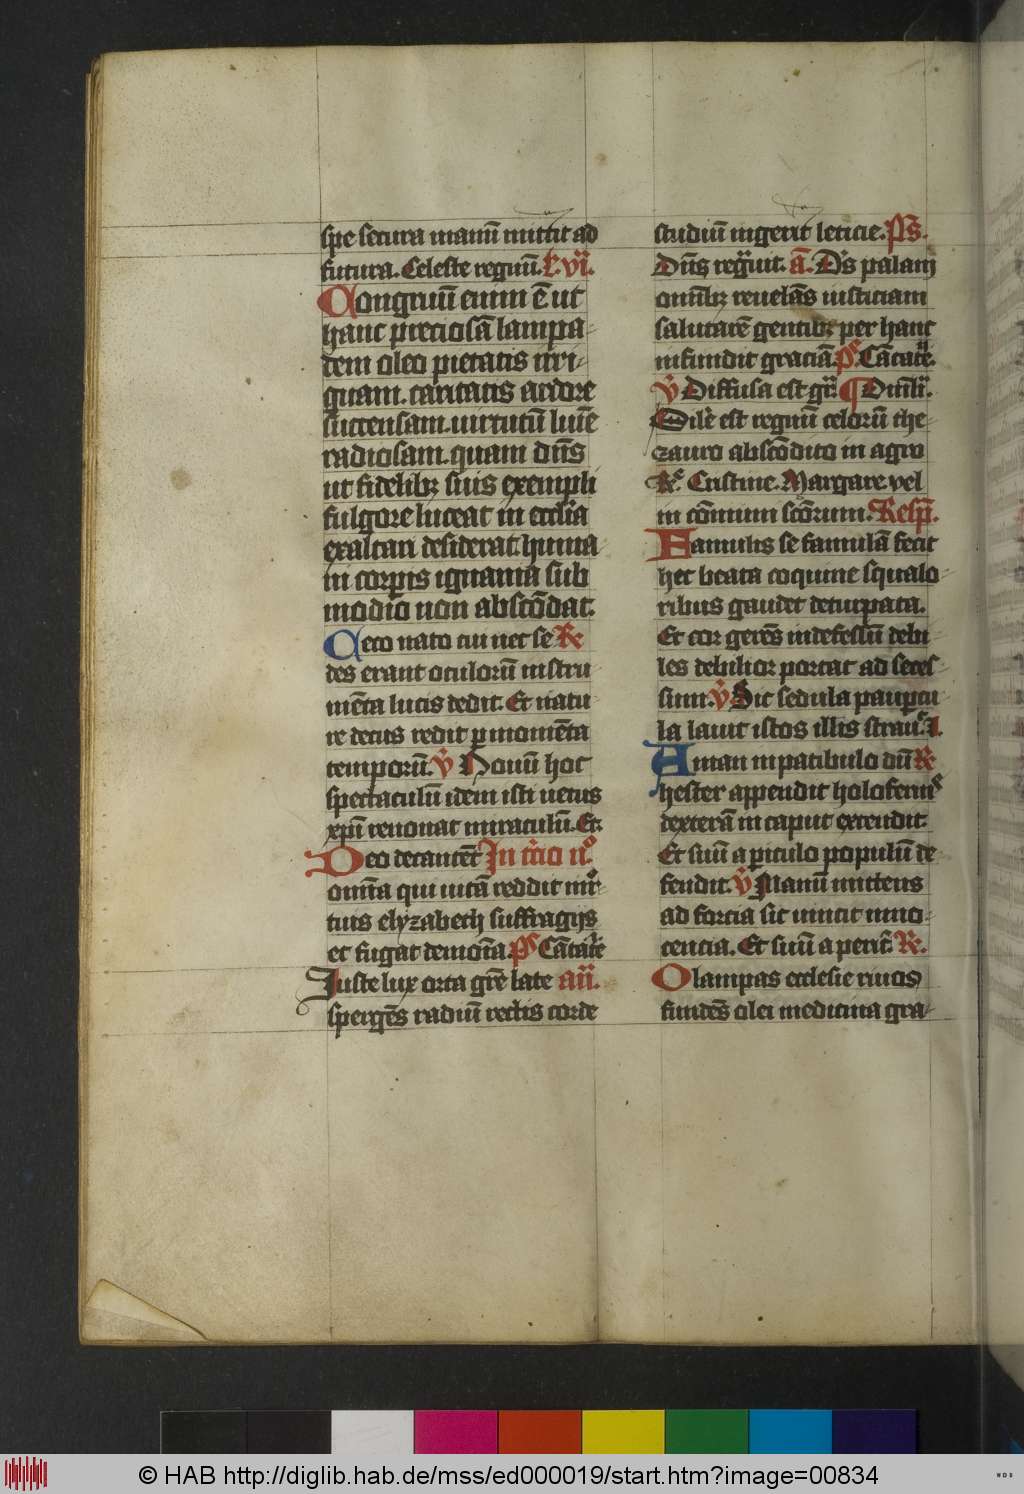 spe secura manū mittit ad
futura. Celeste regnū. L. vi.
Congruū enim ē ut
hanc preciosā lampa-
dem oleo pietatis irri-
guam. caritatis ardore
succensam. uirtutū lumē
radiosam. quam dn̄s
ut fidelibꝫ suis exempli
fulgore luceat in eccl̄ia
exaltari desiderat. huma-
ni corꝑis ignauia sub
modio non abscōdat.
Ceco nato cui nec se Re
des erant oculorū instru-
mēta lucis dedit. Et natu-
re decus redit ꝑ momēta
temporū. v̄ Nouū hoc
spectaculū idem isti uetus
xp̄i renouat miraculū. Et.
Deo decantēt In t̄cio n̊.
omn̄a qui uitā reddit mr̄-
tuis elyzabeth suffragijs
et fugat demōa. Ps Cātate
Iuste lux orta grē late an̄.
spergēs radiū rectis corde
studiū ingerit leticie. Ps̄.
Dn̄s regͣuit. ā. Ds̄ palam
omībꝫ reuelās iusticiam
salutarē gentibꝫ per hanc
infundit graciā. ps̄. Cātate.
v̄ Diffusa est gr̄. ¶ Om̄lī.
Sil̄e est regnū celorū the-
zauro abscōdito in agro
Re. Cristine. Margare. vel
in cōmuni scōrum. Resp̄.
Famulis se famulā fecit
hec beata coquine squalo-
ribus gaudet deturpata.
Et cor gerēs indefessū debi-
les debilior portat ad seces-
sum. v̄ Sic sedula pauꝑcu-
la lauit istos illis strau͛. I.
Aman in patibulo dū Re
hester appendit holoferni͛
dexterā in caput extendit.
Et suū a ꝑiculo populū de-
fendit. v̄ Manū mittens
ad forcia sic uincit inno-
cencia. Et suū a peric̄. Re.
O lampas ecclesie riuos
fundēs olei medicina gra-
© HAB http://diglib.hab.de/mss/ed000019/start.htm?image=00834